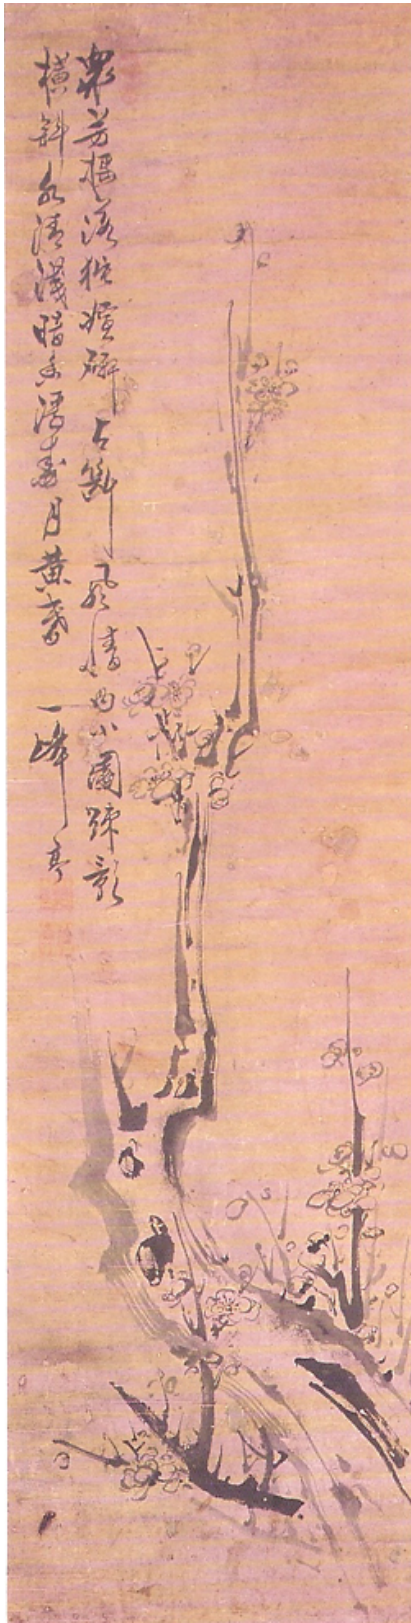 衆芳搖落獨暄姸占斷風情向小園疎影
橫斜水淸淺暗香浮動月黃昏